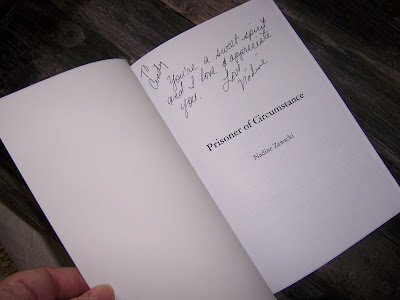 To
Cindy
You're a sweet spirit
and I love & appreciate
you.
Love,
Nadine
Prisoner of Circumstance
Nadine Zawacki